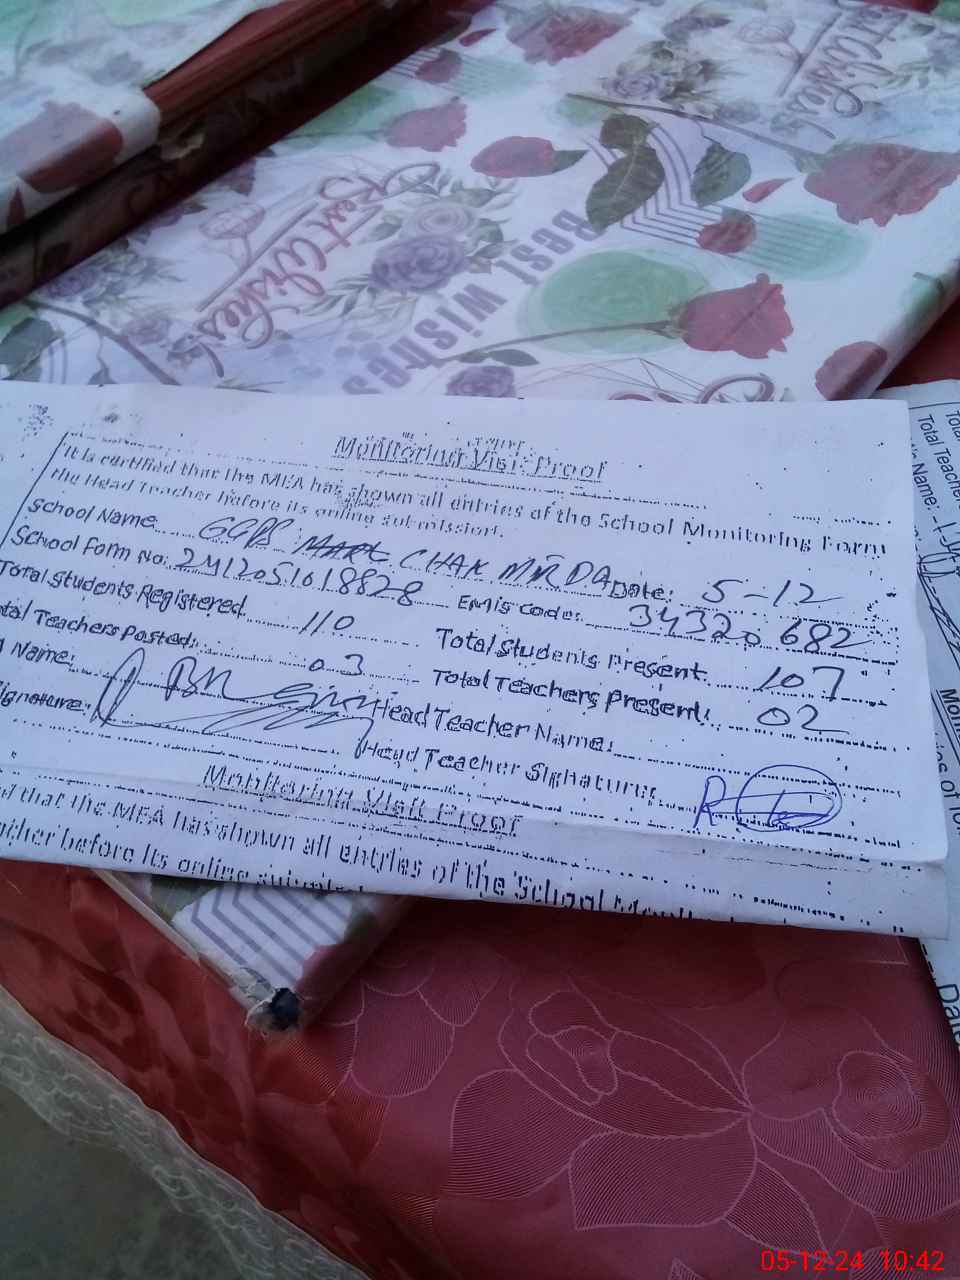 Best Wishes
Best Wishes
Best Wishes
Monitoring Visit Proof
It is certified that the MEA has shown all entries of the School Monitoring Form
the Head Teacher before its online submission.
School Name: GGPS CHAK Date: 5-12
School Form No: 2412051018828 Emis code: 34320682
Total Students Registered 110 Total Students Present 107
tal Teachers Posted: 03 Total Teachers Present: 02
Name: Head Teacher Name:
ignature: Head Teacher Signature:
Monitoring Visit Proof
d that the MEA has shown all entries of the School
before its online
Total Teacher
Name:
05-12-24 10:42